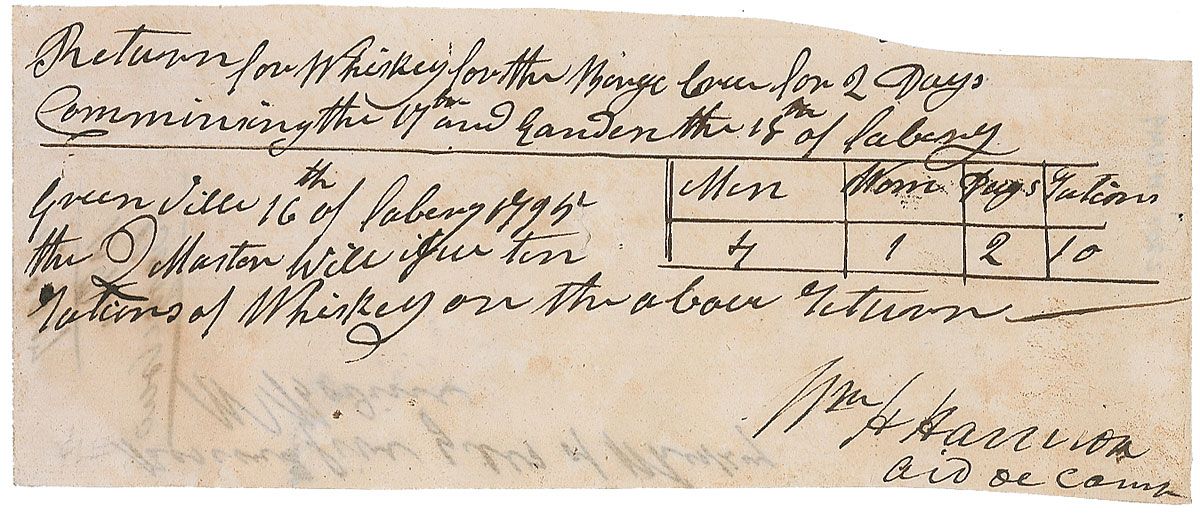 Return for Whiskey for the Barge Crew for 2 Days
Commincing the 17th and Ganden the 18th of fabery
Men Wom Days rations
4 1 2 10
Green Ville 16th of fabery 1795
the Q Master Will isue ten
rations of Whiskey on the aboue return
Wm H Harrison
aid de camp